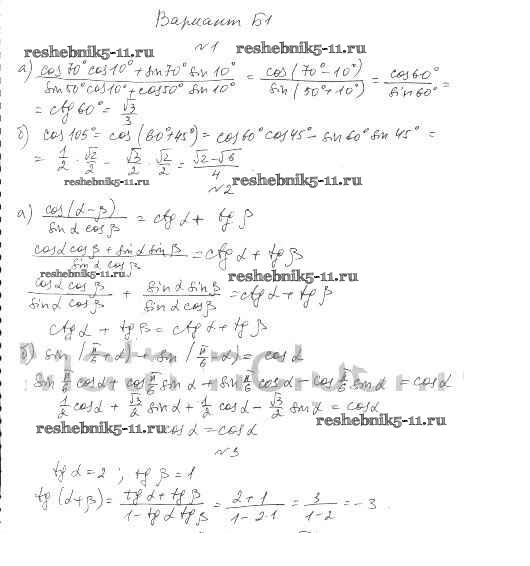 Вариант Б1
reshebnik5-11.ru №1 reshebnik5-11.ru
а) (cos 70° cos 10° + sin 70° sin 10°)/(sin 50° cos 10° + cos 50° sin 10°) = cos(70° - 10°)/sin(50° + 10°) = cos 60°/sin 60° =
= ctg 60° = √3/3
б) cos 105° = cos(60° + 45°) = cos 60° cos 45° - sin 60° sin 45° =
= 1/2 · √2/2 - √3/2 · √2/2 = (√2 - √6)/4
reshebnik5-11.ru №2 reshebnik5-11.ru
а) cos(α - β)/(sin α cos β) = ctg α + tg β
(cos α cos β + sin α sin β)/(sin α cos β) = ctg α + tg β
reshebnik5-11.ru reshebnik5-11.ru
(cos α cos β)/(sin α cos β) + (sin α sin β)/(sin α cos β) = ctg α + tg β
ctg α + tg β = ctg α + tg β
б) sin(π/6 + α) + sin(π/6 - α) = cos α
sin π/6 cos α + cos π/6 sin α + sin π/6 cos α - cos π/6 sin α = cos α
1/2 cos α + √3/2 sin α + 1/2 cos α - √3/2 sin α = cos α
reshebnik5-11.ru cos α = cos α reshebnik5-11.ru
№3
tg α = 2 ; tg β = 1
tg(α + β) = (tg α + tg β)/(1 - tg α tg β) = (2 + 1)/(1 - 2·1) = 3/(1 - 2) = -3.